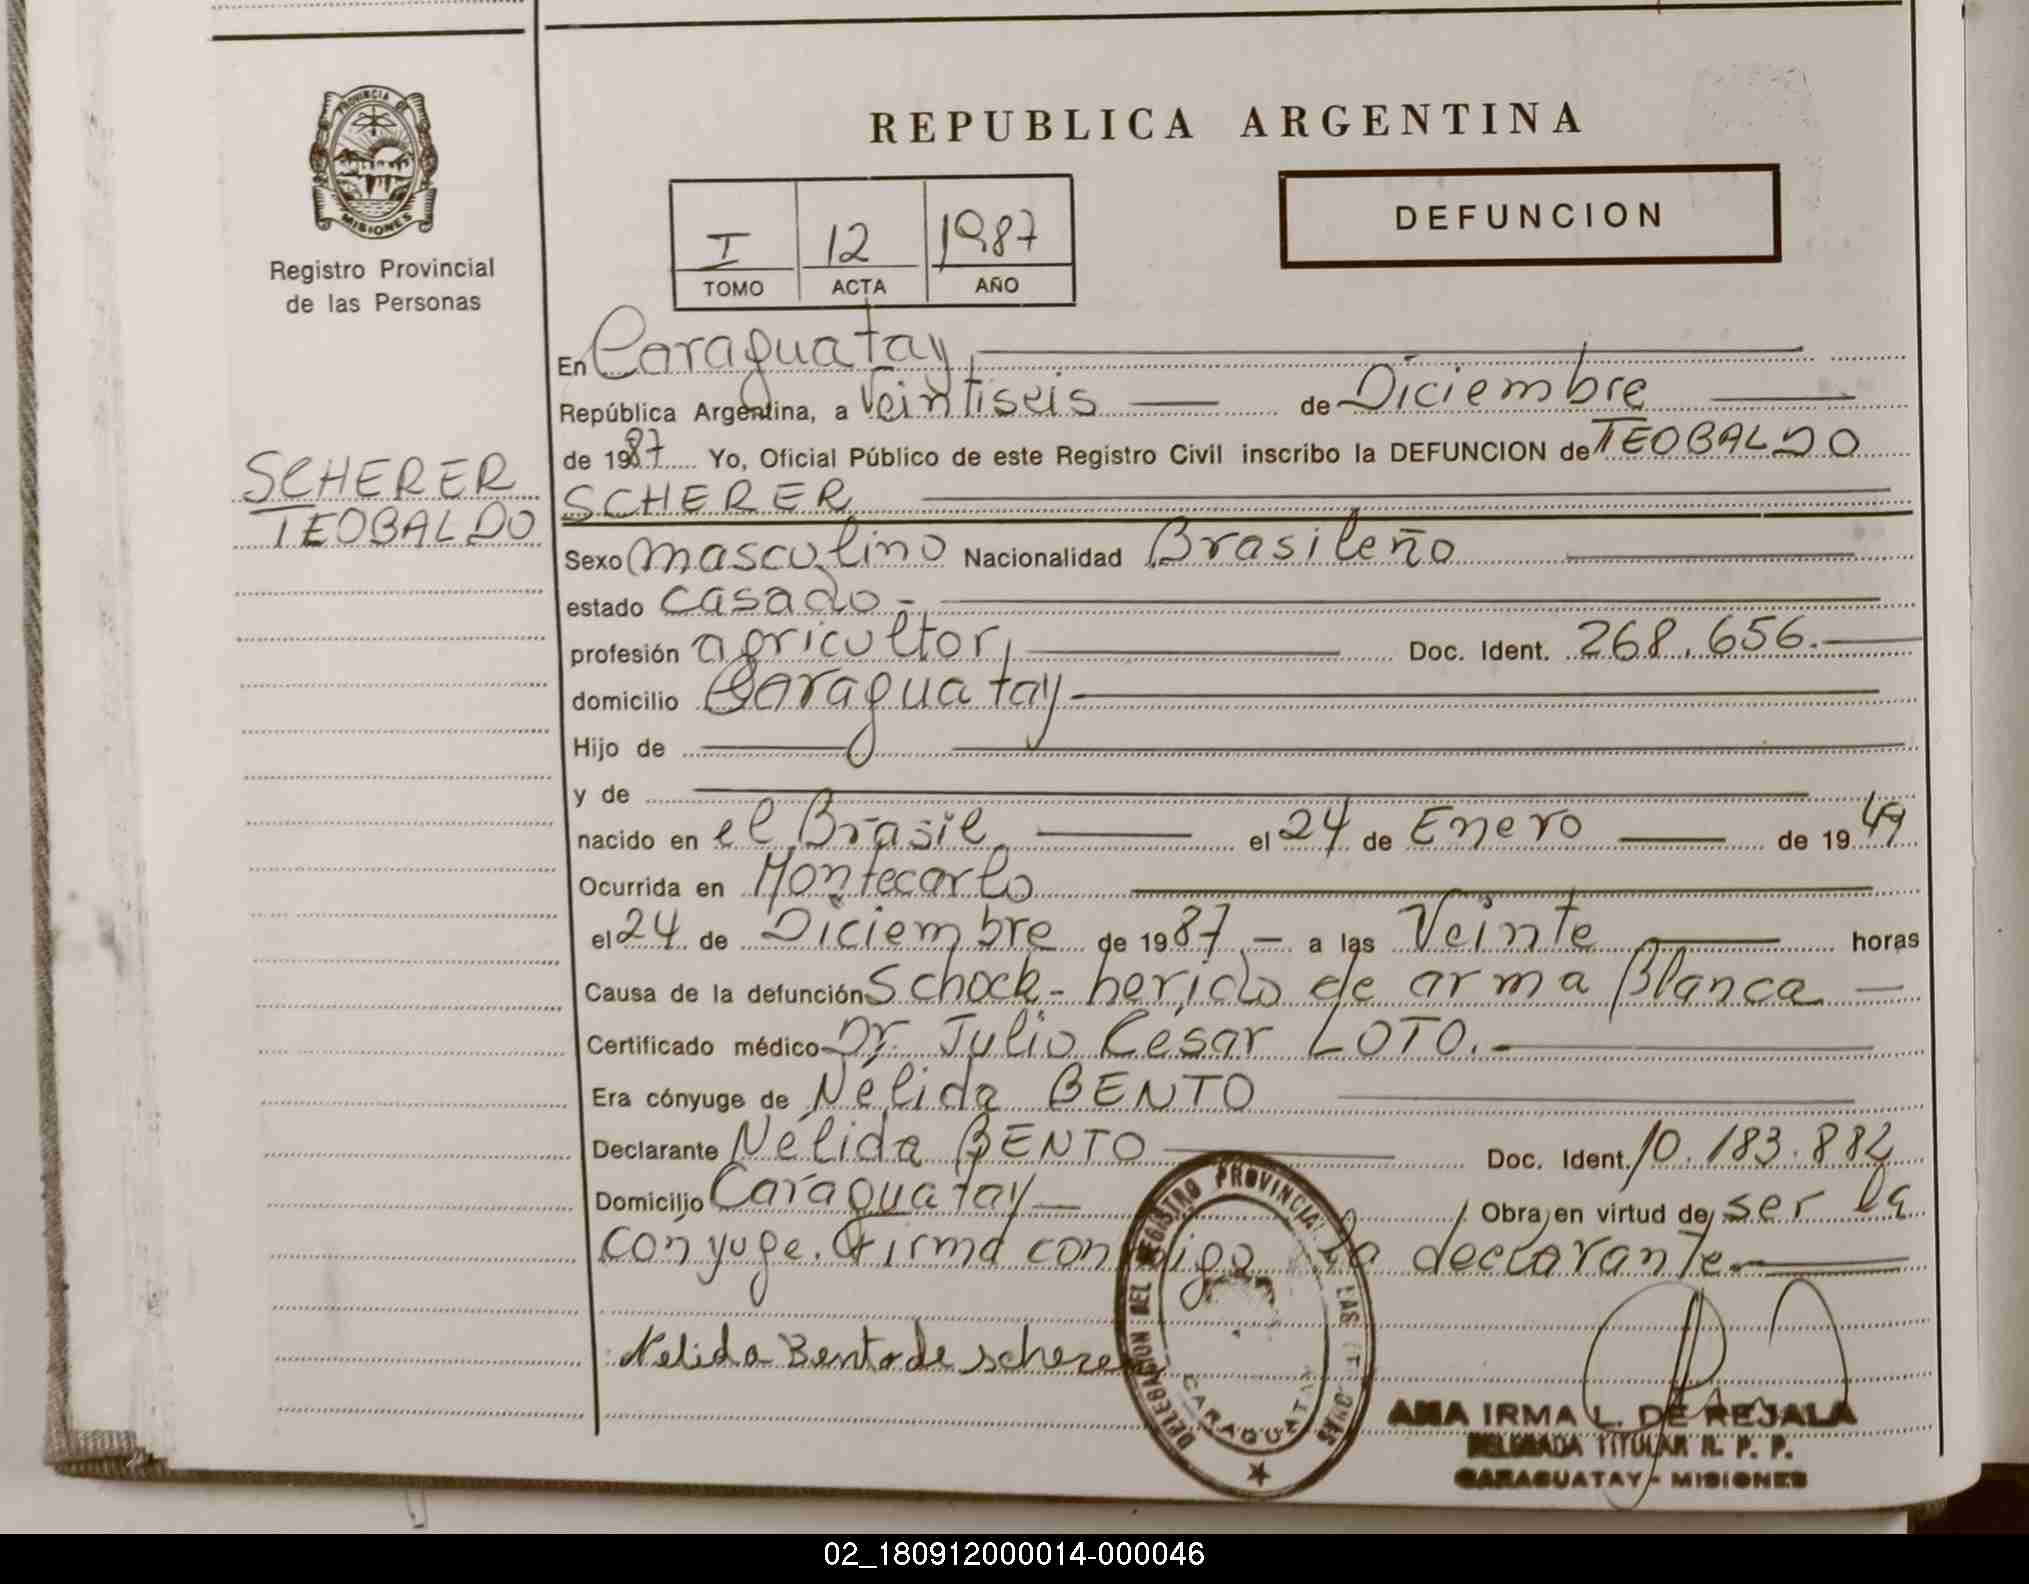 PROVINCIA DE
MISIONES
Registro Provincial
de las Personas
REPUBLICA ARGENTINA
I 12 1987
TOMO ACTA AÑO
DEFUNCION
En Caraguatay
República Argentina, a Veintiseis de Diciembre
de 1987 Yo, Oficial Público de este Registro Civil inscribo la DEFUNCION de TEOBALDO
SCHERER
SCHERER
TEOBALDO
Sexo masculino Nacionalidad Brasileño
estado casado -
profesión agricultor, Doc. Ident. 268.656.
domicilio Caraguatay
Hijo de
y de
nacido en el Brasil el 24 de Enero de 1949
Ocurrida en Montecarlo
el 24 de Diciembre de 1987 - a las Veinte horas
Causa de la defunción Schock - herida de arma Blanca
Certificado médico Dr. Julio César LOTO.
Era cónyuge de Nélida BENTO
Declarante Nélida BENTO Doc. Ident. 10.183.882
Domicilio Caraguatay Obra en virtud de ser la
cónyuge. Firma conmigo la declarante
Nelida Bento de scherer
DELEGACION DEL REGISTRO PROVINCIAL LAS
CARAGUATAY
ANA IRMA L. DE REJALA
DELEGADA TITULAR R. P. P.
CARAGUATAY - MISIONES
02_180912000014-000046